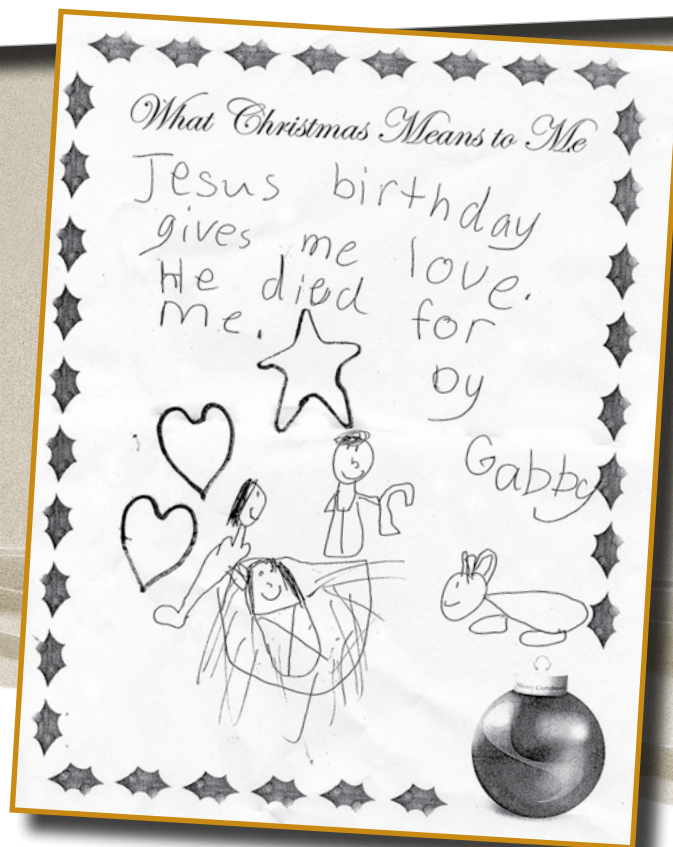 What Christmas Means to Me
Jesus birthday
gives me love.
He died for
me.
by
Gabby
Merry Christmas